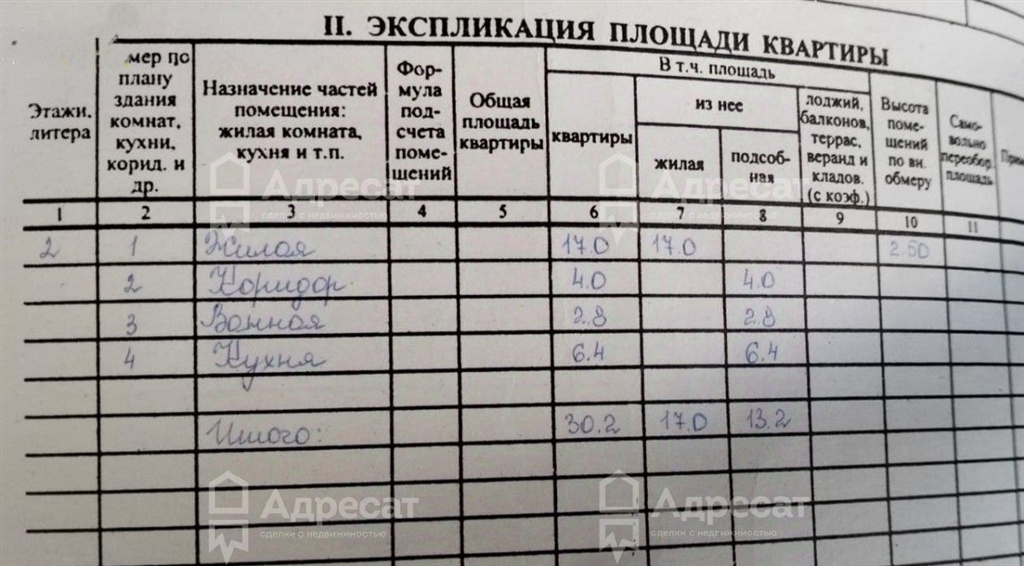 II. ЭКСПЛИКАЦИЯ ПЛОЩАДИ КВАРТИРЫ
Этажи,
литера
мер по
плану
здания
комнат,
кухни,
корид. и
др.
Назначение частей
помещения:
жилая комната,
кухня и т.п.
Фор-
мула
под-
счета
поме-
щений
Общая
площадь
квартиры
В т.ч. площадь
квартиры
из нее
жилая
подсоб-
ная
лоджий,
балконов,
террас,
веранд и
кладов.
(с коэф.)
Высота
поме-
щений
по вн.
обмеру
Само-
вольно
переобор.
площадь
Прим
1 2 3 4 5 6 7 8 9 10 11
2 1 Жилая 17.0 17.0 2.50
2 Коридор 4.0 4.0
3 Ванная 2.8 2.8
4 Кухня 6.4 6.4
Итого: 30.2 17.0 13.2
Адресат
сделки с недвижимостью
Адресат
сделки с недвижимостью
Адресат
сделки с недвижимостью
Адресат
сделки с недвижимостью